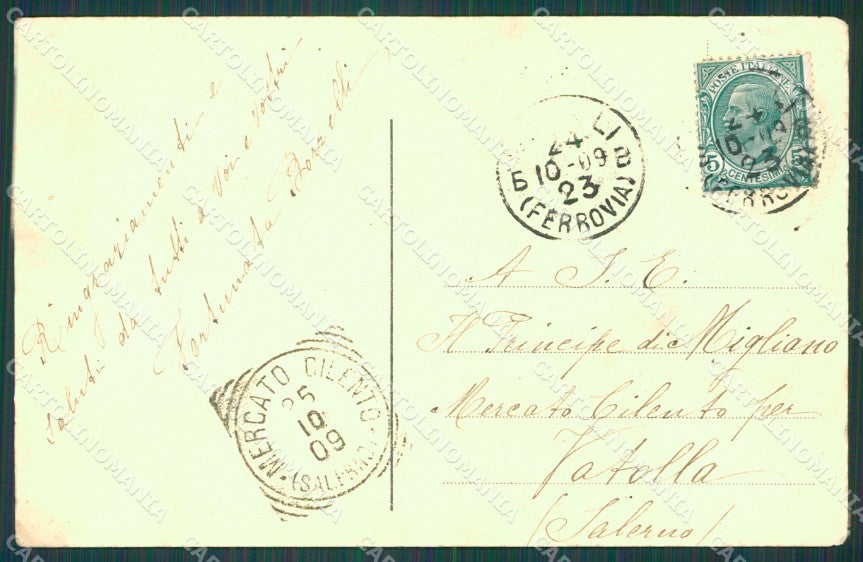 Ringraziamenti e
saluti da tutti a voi e vostri
Fortunata
24
10-09
23
(FERROVIA)
POSTE ITALIANE
5 CENTESIMI 5
24
10-09
23
(FERROVIA)
A S. E.
Il Principe di Migliano
Mercato Cilento per
Vatolla
(Salerno)
MERCATO CILENTO
25
10
09
(SALERNO)
CARTOLINOMANIA